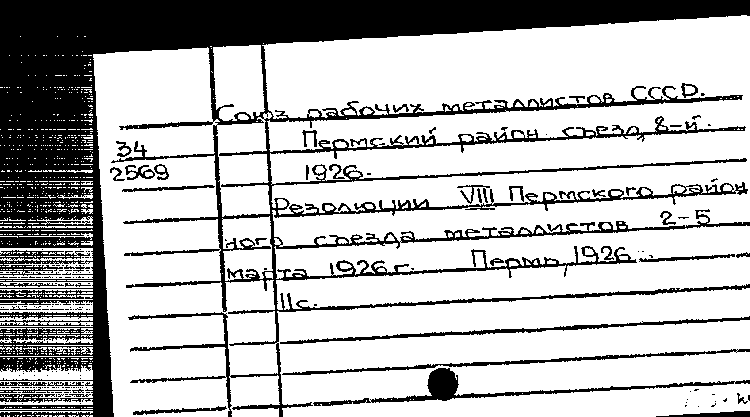 Союз рабочих металлистов СССР.
34 Пермский район. съезд, 8-й.
2569 1926.
Резолюции VIII Пермского район
ного съезда металлистов 2-5
марта 1926 г. Пермь, 1926.
11с.